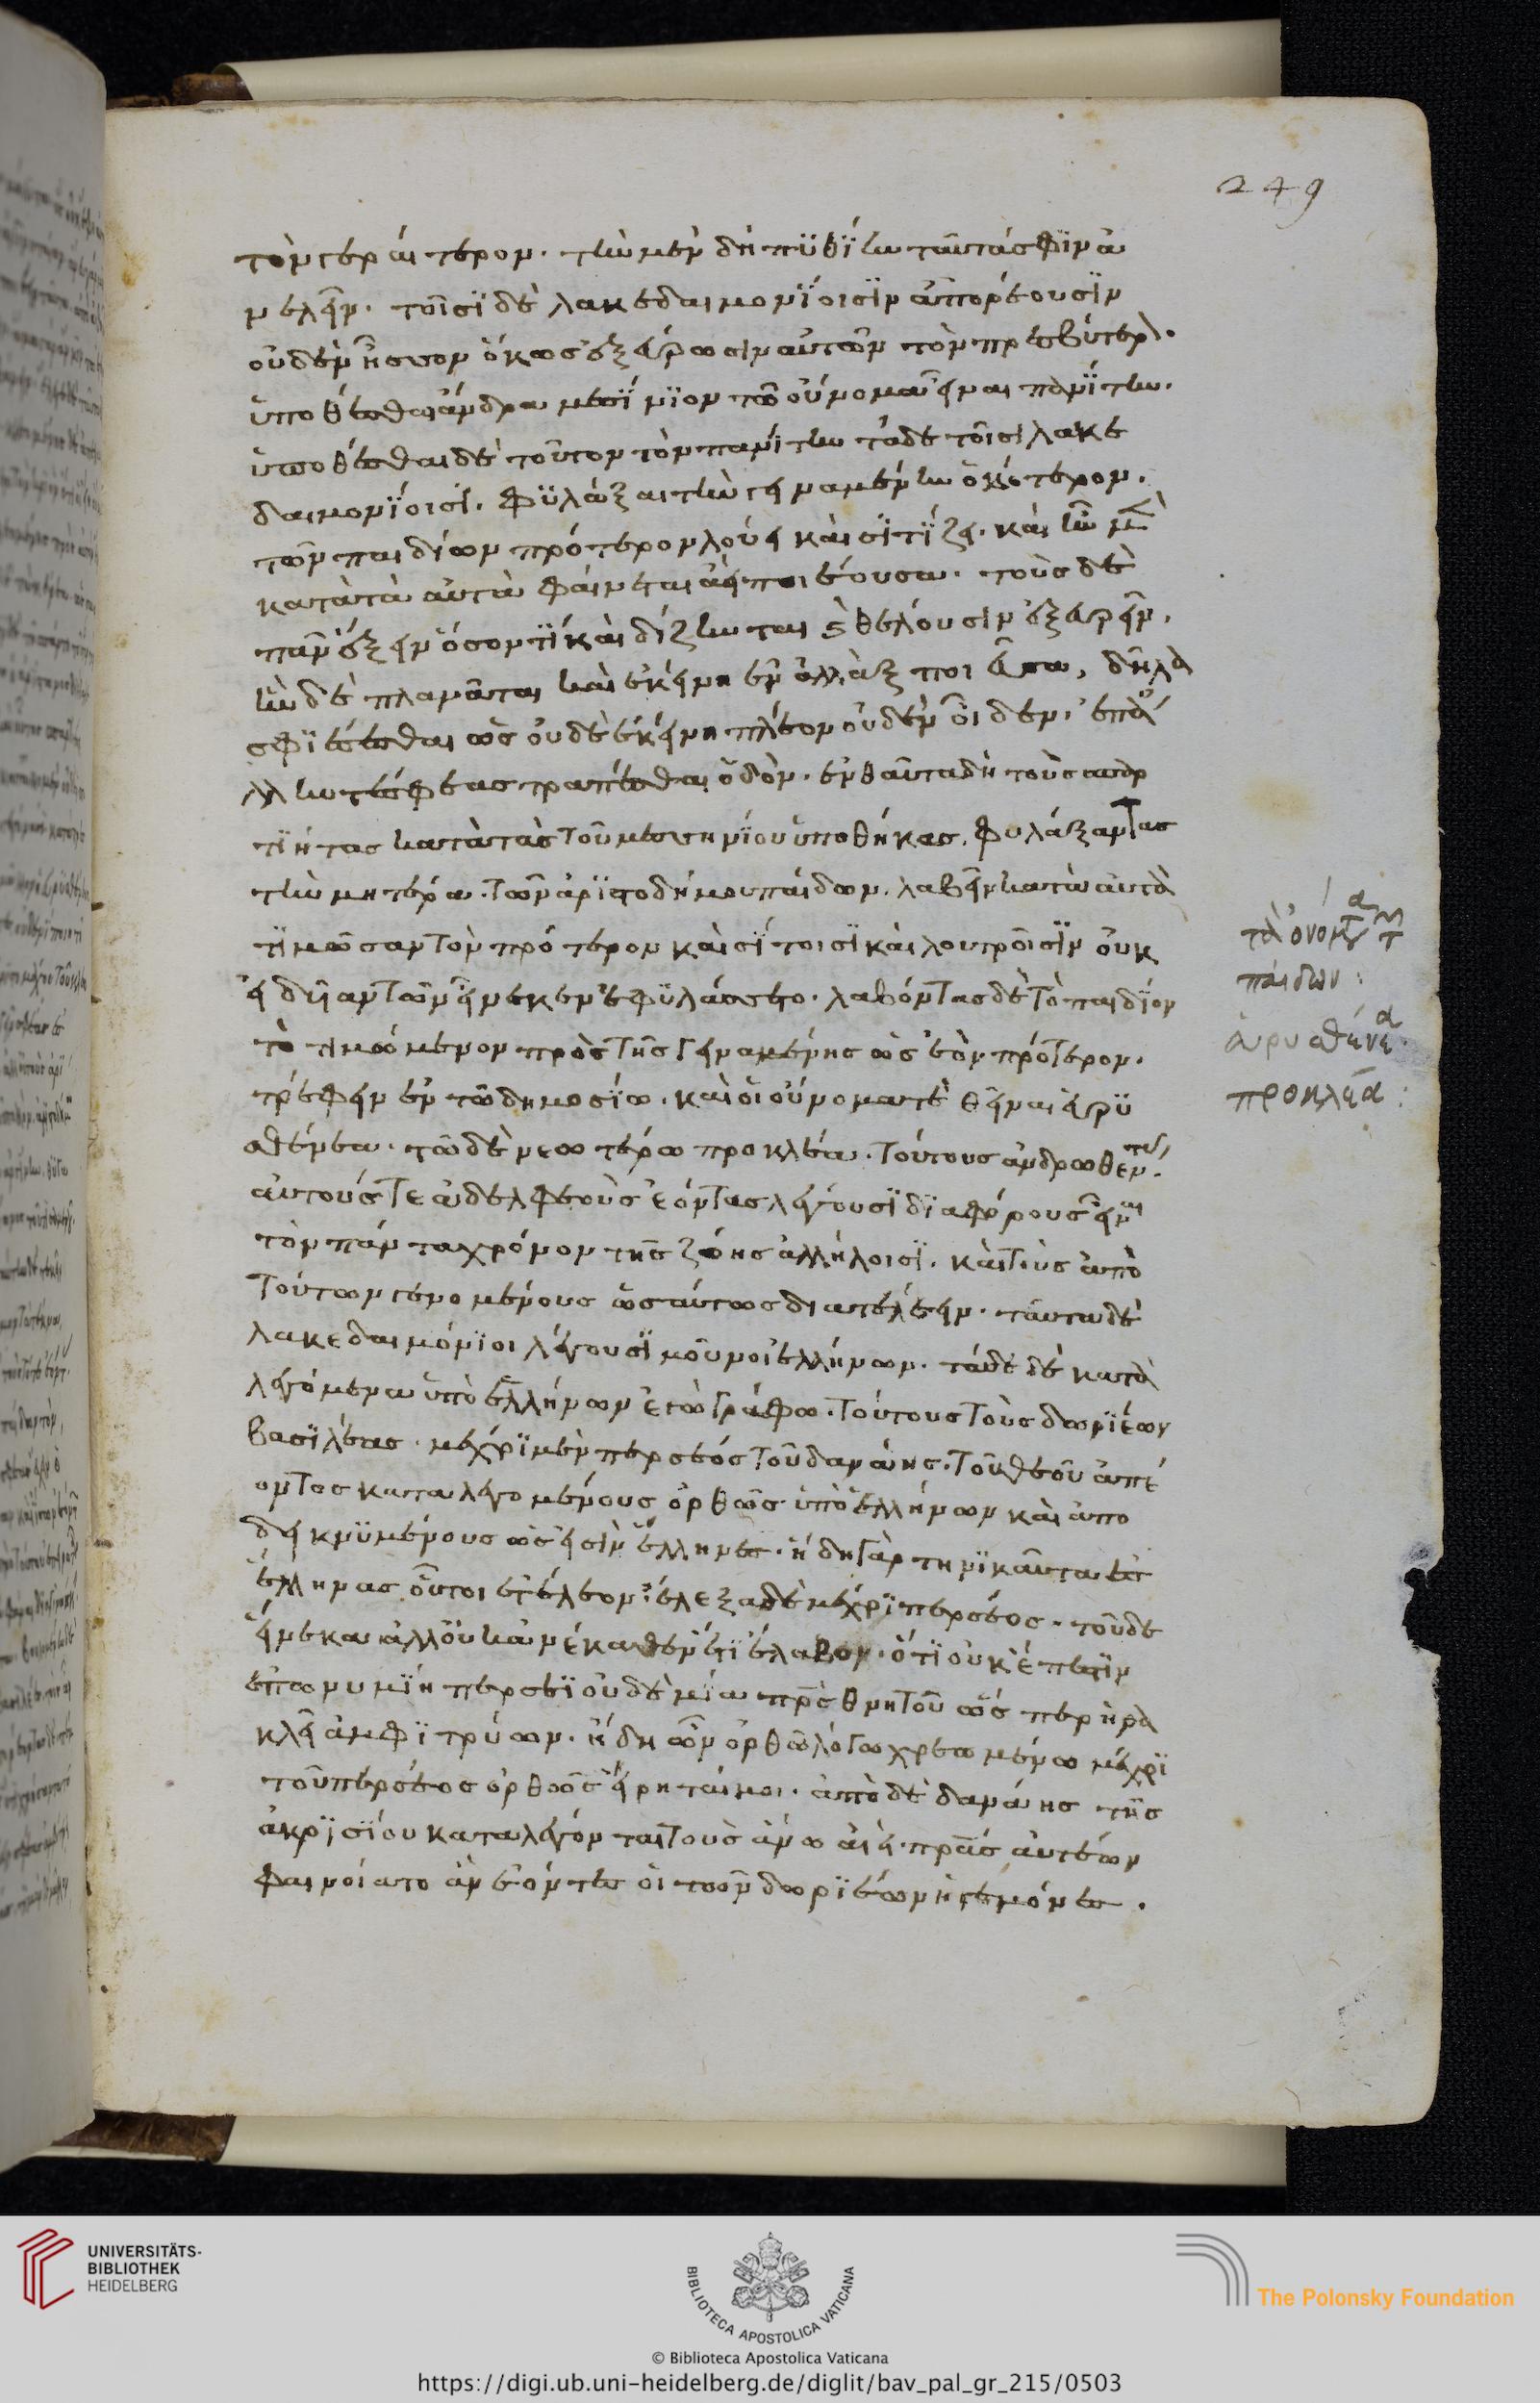 249
τὸν γεραίτερον. τὴν μὲν δὴ πυθίην ταῦτά σφιν ἀ
νελεῖν. τοῖσι δὲ λακεδαιμονίοισιν ἀπορέουσιν
οὐδὲν ἧσσον ὅκως ἐξεύρωσιν αὐτῶν τὸν πρεσβύτερον.
ὑποθέσθαι ἄνδρα μεσήνιον τῶ οὔνομα εἶναι πανίτην.
ὑποθέσθαι δὲ τοῦτον τὸν πανίτην τάδε τοῖσι λακε
δαιμονίοισι. φυλάξαι τὴν γειναμένην ὁκότερον
τῶν παιδίων πρότερον λούει καὶ σιτίζει. καὶ ἢν μὲν
κατὰ τὰ αὐτὰ φαίνεται ἀεὶ ποιέουσα. τοὺς δὲ
πᾶν ἕξειν ὅσον τι καὶ δίζηνται ἐθέλουσιν ἐξευρεῖν.
ἢν δὲ πλανᾶται καὶ ἐκείνη ἐναλλὰξ ποιεῦσα, δῆλα
σφι ἔσεσθαι ὡς οὐδὲ ἐκείνη πλέον οὐδὲν οἶδεν. ἐπ' ἄ
λλην τέ σφεας τραπέσθαι ὁδόν. ἐνθαῦτα δὴ τοὺς σπαρ
τιήτας κατὰ τὰς τοῦ μεσσηνίου ὑποθήκας. φυλάξαντας
τὴν μητέρα τῶν ἀριστοδήμου παίδων. λαβεῖν κατὰ αὐτὰ
τιμῶσαν τὸν πρότερον καὶ σίτοισι καὶ λουτροῖσιν οὐκ
εἰδυῖαν τῶν εἵνεκεν ἐφυλάσσετο. λαβόντας δὲ τὸ παιδίον
τὸ τιμώμενον πρὸς τῆς γειναμένης ὡς ἐὸν πρότερον.
τρέφειν ἐν τῶ δημοσίω. καὶ οἱ οὔνομα τεθεῖναι εὐρυ
σθένεα. τῶ δὲ νεωτέρω προκλέα. τούτους ἀνδρωθέντας
αὐτούς τε ἀδελφεοὺς ἐόντας λέγουσι διαφόρους εἶναι
τὸν πάντα χρόνον τῆς ζόης ἀλλήλοισι. καὶ τοὺς ἀπὸ
τούτων γενομένους ὡσαύτως διατελέειν. ταῦτα δὲ
λακεδαιμόνιοι λέγουσι μοῦνοι ἑλλήνων. τάδε δὲ κατὰ
λεγόμενα ὑπὸ ἑλλήνων ἐγὼ γράφω. τούτους τοὺς δωριέων
βασιλέας. μέχρι μὲν περσέος τοῦ δανάης. τοῦ θεοῦ ἀπε
όντος καταλεγομένους ὀρθῶς ὑπὸ ἑλλήνων καὶ ἀπο
δεικνυμένους ὡς εἰσὶν ἕλληνες. ἤδη γὰρ τηνικαῦτα ἐς
ἕλληνας οὗτοι ἐτέλεον. ἔλεξα δὲ μέχρι περσέος. τοῦδε
εἵνεκα ἀλλ' οὐκ ἀνέκαθεν ἔτι ἔλαβον. ὅτι οὐκ ἔπεστιν
ἐπωνυμίη περσέϊ οὐδεμία πρὸς θνητοῦ ὥσπερ ἡρα
κλεῖ ἀμφιτρύων. ἤδη ὦν ὀρθῶ λόγω χρεωμένω μέχρι
τοῦ περσέος ὀρθῶς εἴρηταί μοι. ἀπὸ δὲ δανάης τῆς
ἀκρισίου καταλέγονται τοὺς ἄνω ἀεὶ πατέρας αὐτέων
φαινοίατο ἂν ἐόντες οἱ τῶν δωριέων ἡγεμόνες.
τὰ ὀνόματα τῶν
παίδων:
εὐρυσθένεα
προκλέα:
UNIVERSITÄTS-
BIBLIOTHEK
HEIDELBERG
BIBLIOTECA APOSTOLICA VATICANA
The Polonsky Foundation
© Biblioteca Apostolica Vaticana
https://digi.ub.uni-heidelberg.de/diglit/bav_pal_gr_215/0503